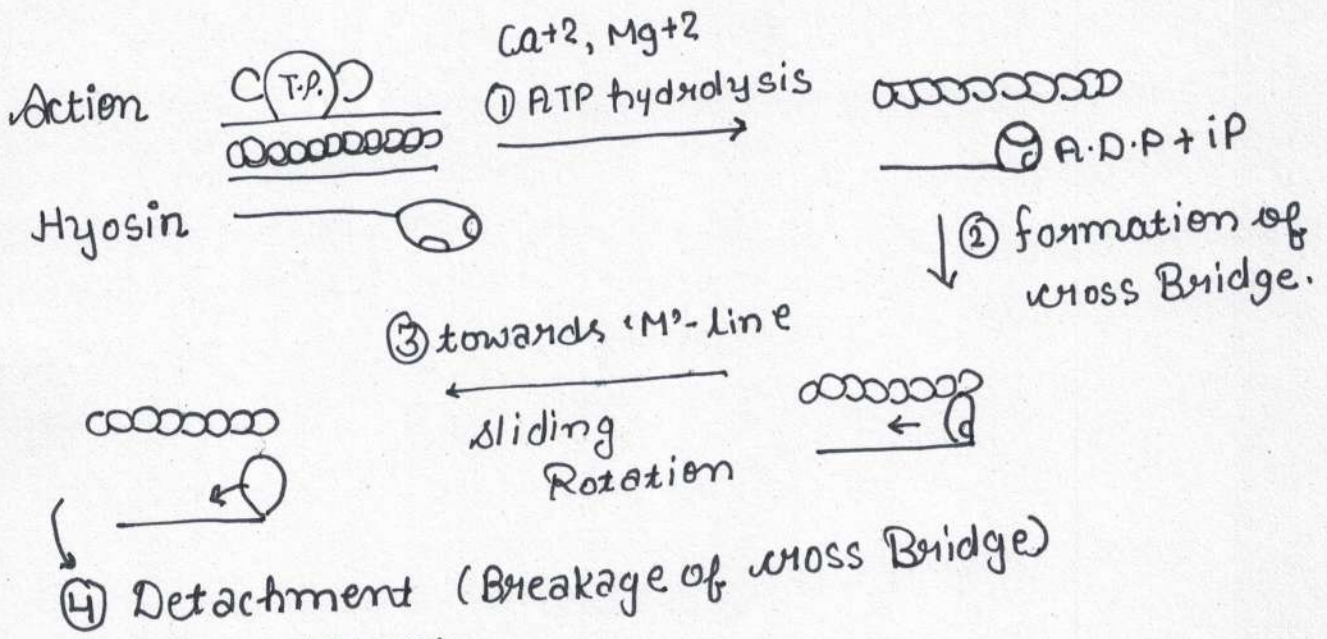 Ca+2, Mg+2
Action
T.P.
① ATP hydrolysis
A.D.P + iP
Hyosin
② formation of
cross Bridge.
③ towards 'M'-line
sliding
Rotation
④ Detachment (Breakage of cross Bridge)